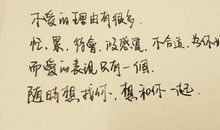 不爱的理由有很多.
忙、累、
、没感觉、不合适、为你
而爱的表现只有一個.
随時想找你、想和你一起.